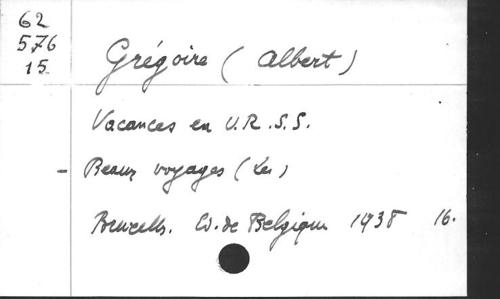 62
576
15
Grégoire (Albert)
Vacances en U.R.S.S.
- Beaux voyages (Les)
Bruxelles. Ed. de Belgique 1938 16.